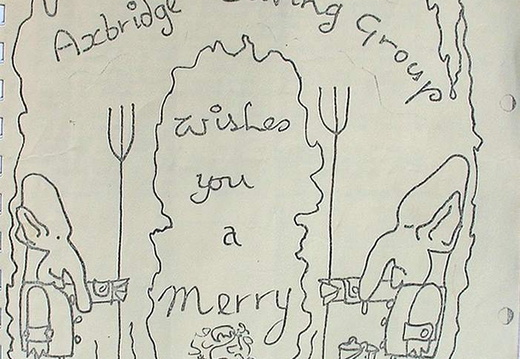 Axbridge Caving Group
wishes
you
a
Merry